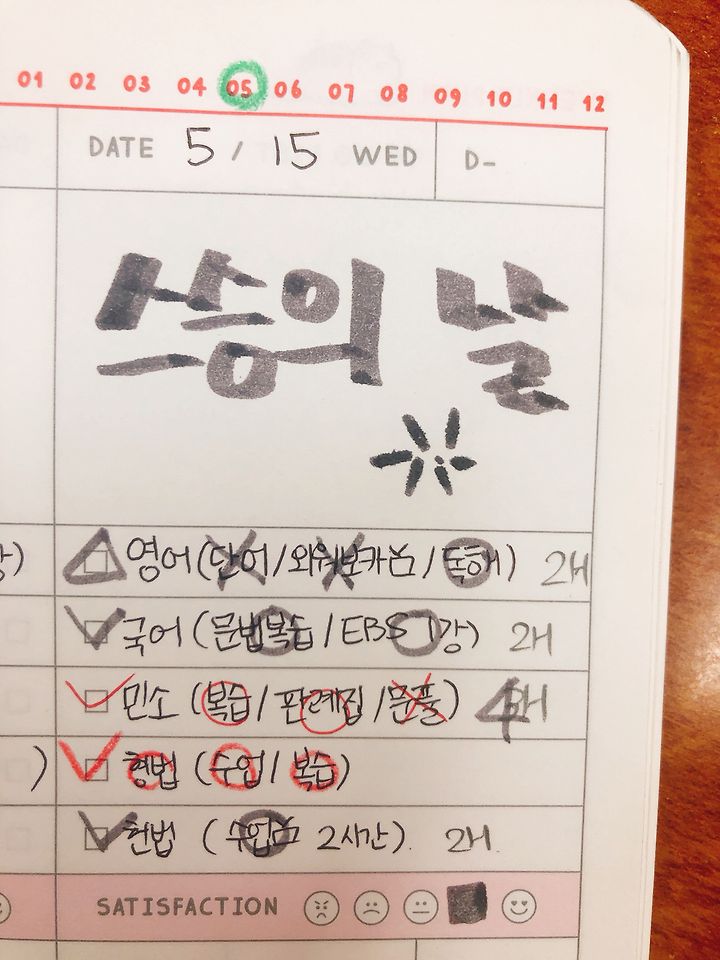 01 02 03 04 05 06 07 08 09 10 11 12
DATE 5 / 15 WED D-
쓰승의 날
영어 (단어 / 외워보카 / 독해) 2H
국어 (문법복습 / EBS 1강) 2H
민소 (복습 / 판례집 / 문풀) 4H
형법 (수업 / 복습)
헌법 (수업 2시간). 2H.
SATISFACTION